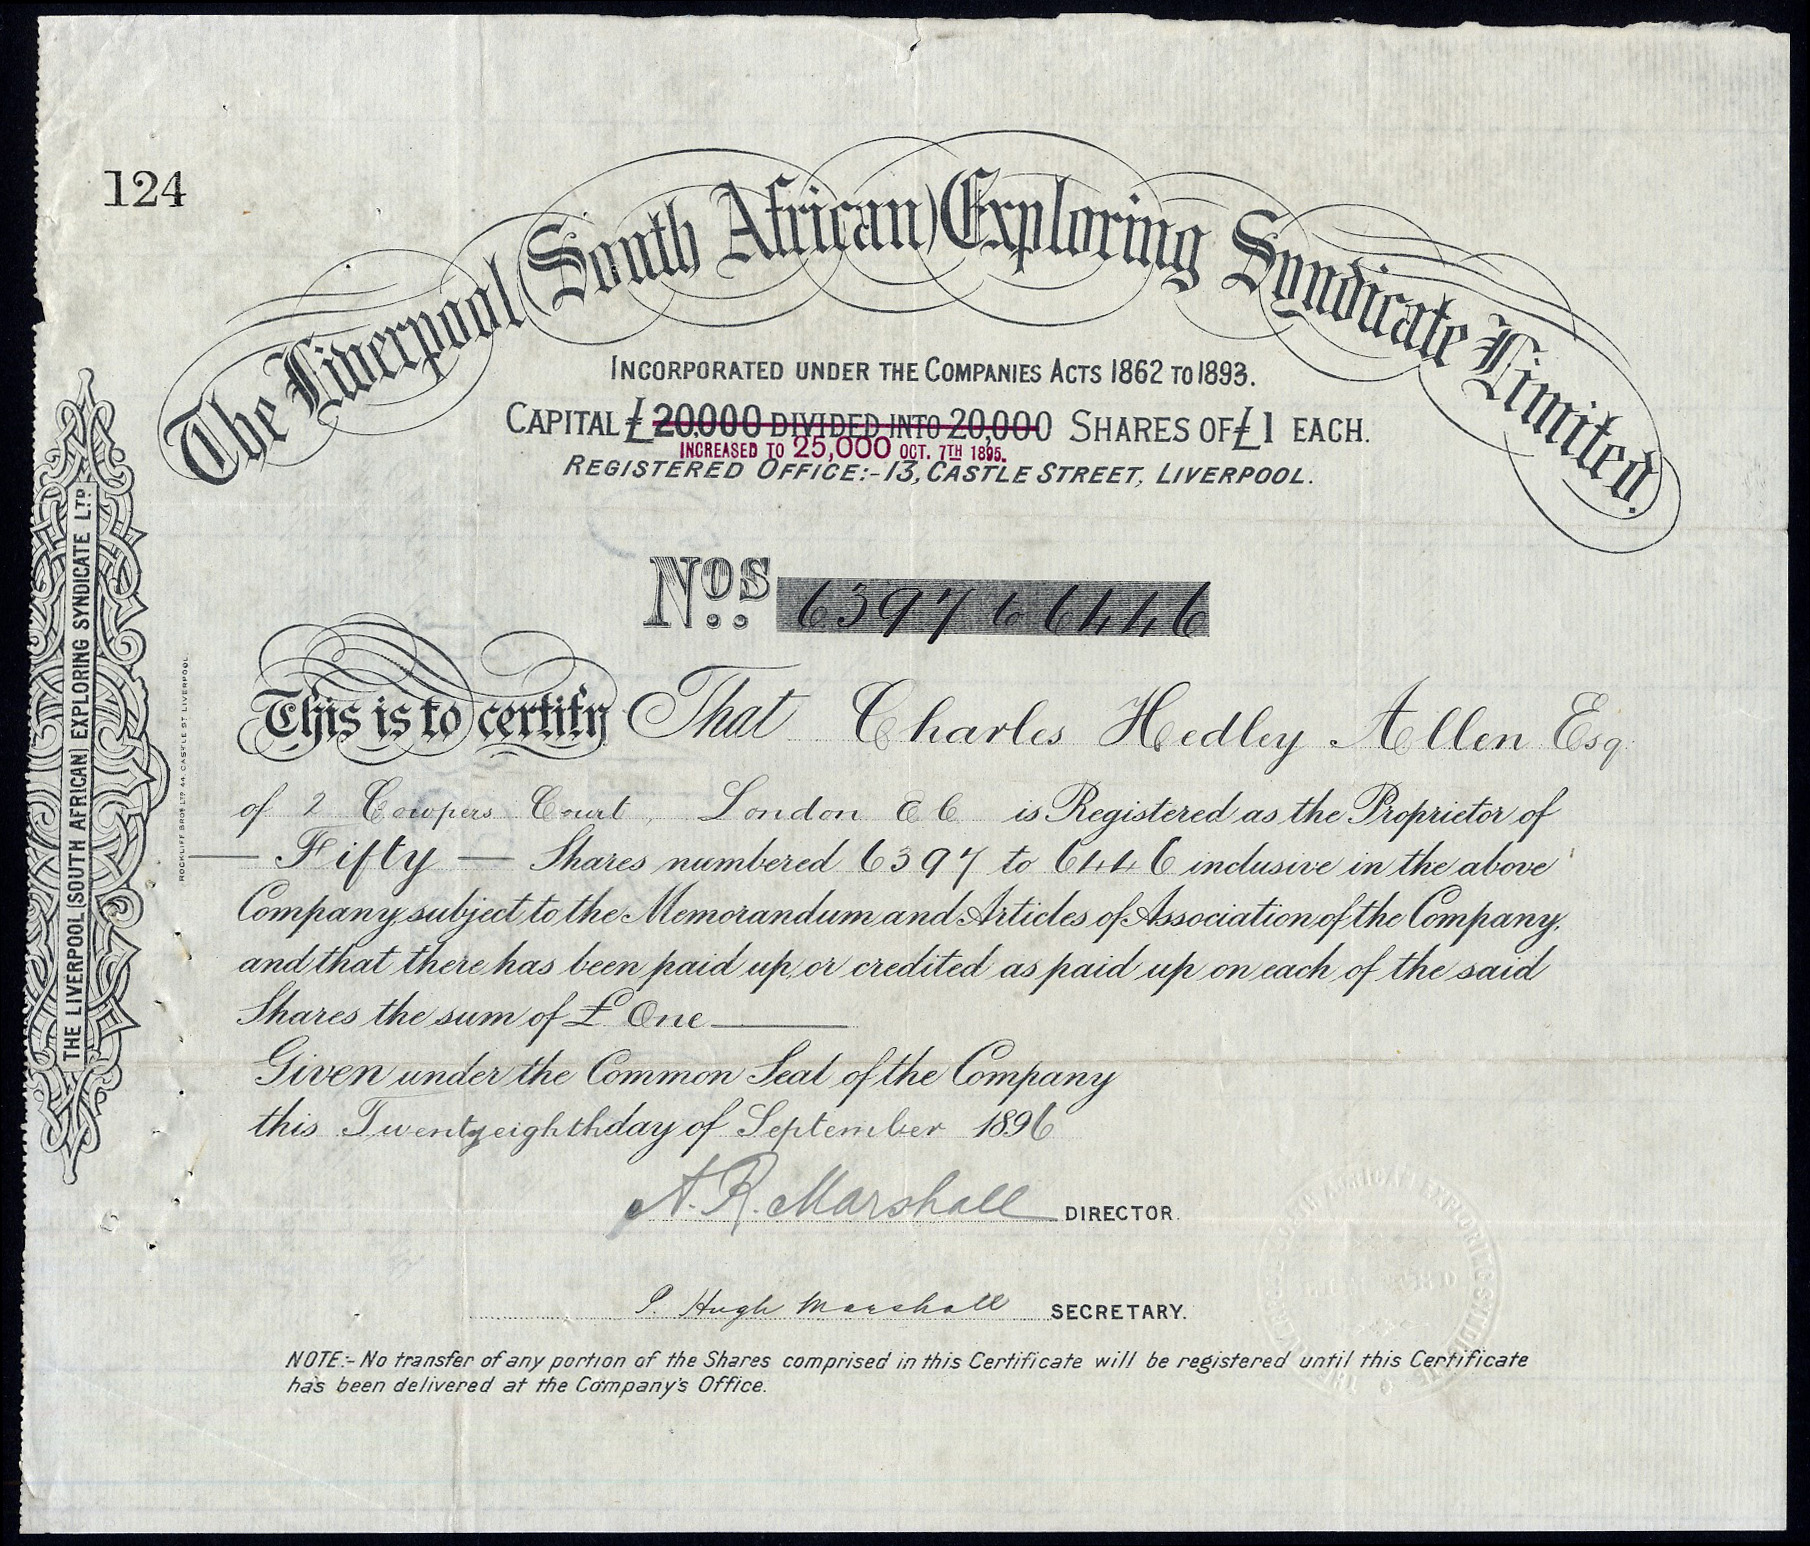 124
The Liverpool (South African) Exploring Syndicate Limited.
INCORPORATED UNDER THE COMPANIES ACTS 1862 TO 1893.
CAPITAL £20,000 DIVIDED INTO 20,000 SHARES OF £1 EACH.
INCREASED TO 25,000 OCT. 7TH 1895.
REGISTERED OFFICE:- 13, CASTLE STREET, LIVERPOOL.
Nos. 6397 to 6446
This is to certify That Charles Hedley Allen Esq
of 2 Cowpers Court, London E C is Registered as the Proprietor of
— Fifty — Shares numbered 6397 to 6446 inclusive in the above
Company, subject to the Memorandum and Articles of Association of the Company,
and that there has been paid up or credited as paid up on each of the said
Shares the sum of £ One
Given under the Common Seal of the Company
this Twentyeighth day of September 1896
A. R. Marshall DIRECTOR.
P. Hugh Marshall SECRETARY.
NOTE:- No transfer of any portion of the Shares comprised in this Certificate will be registered until this Certificate
has been delivered at the Company's Office.
THE LIVERPOOL (SOUTH AFRICAN) EXPLORING SYNDICATE LTD
ROCKLIFF BROS LTD 44 CASTLE ST LIVERPOOL.